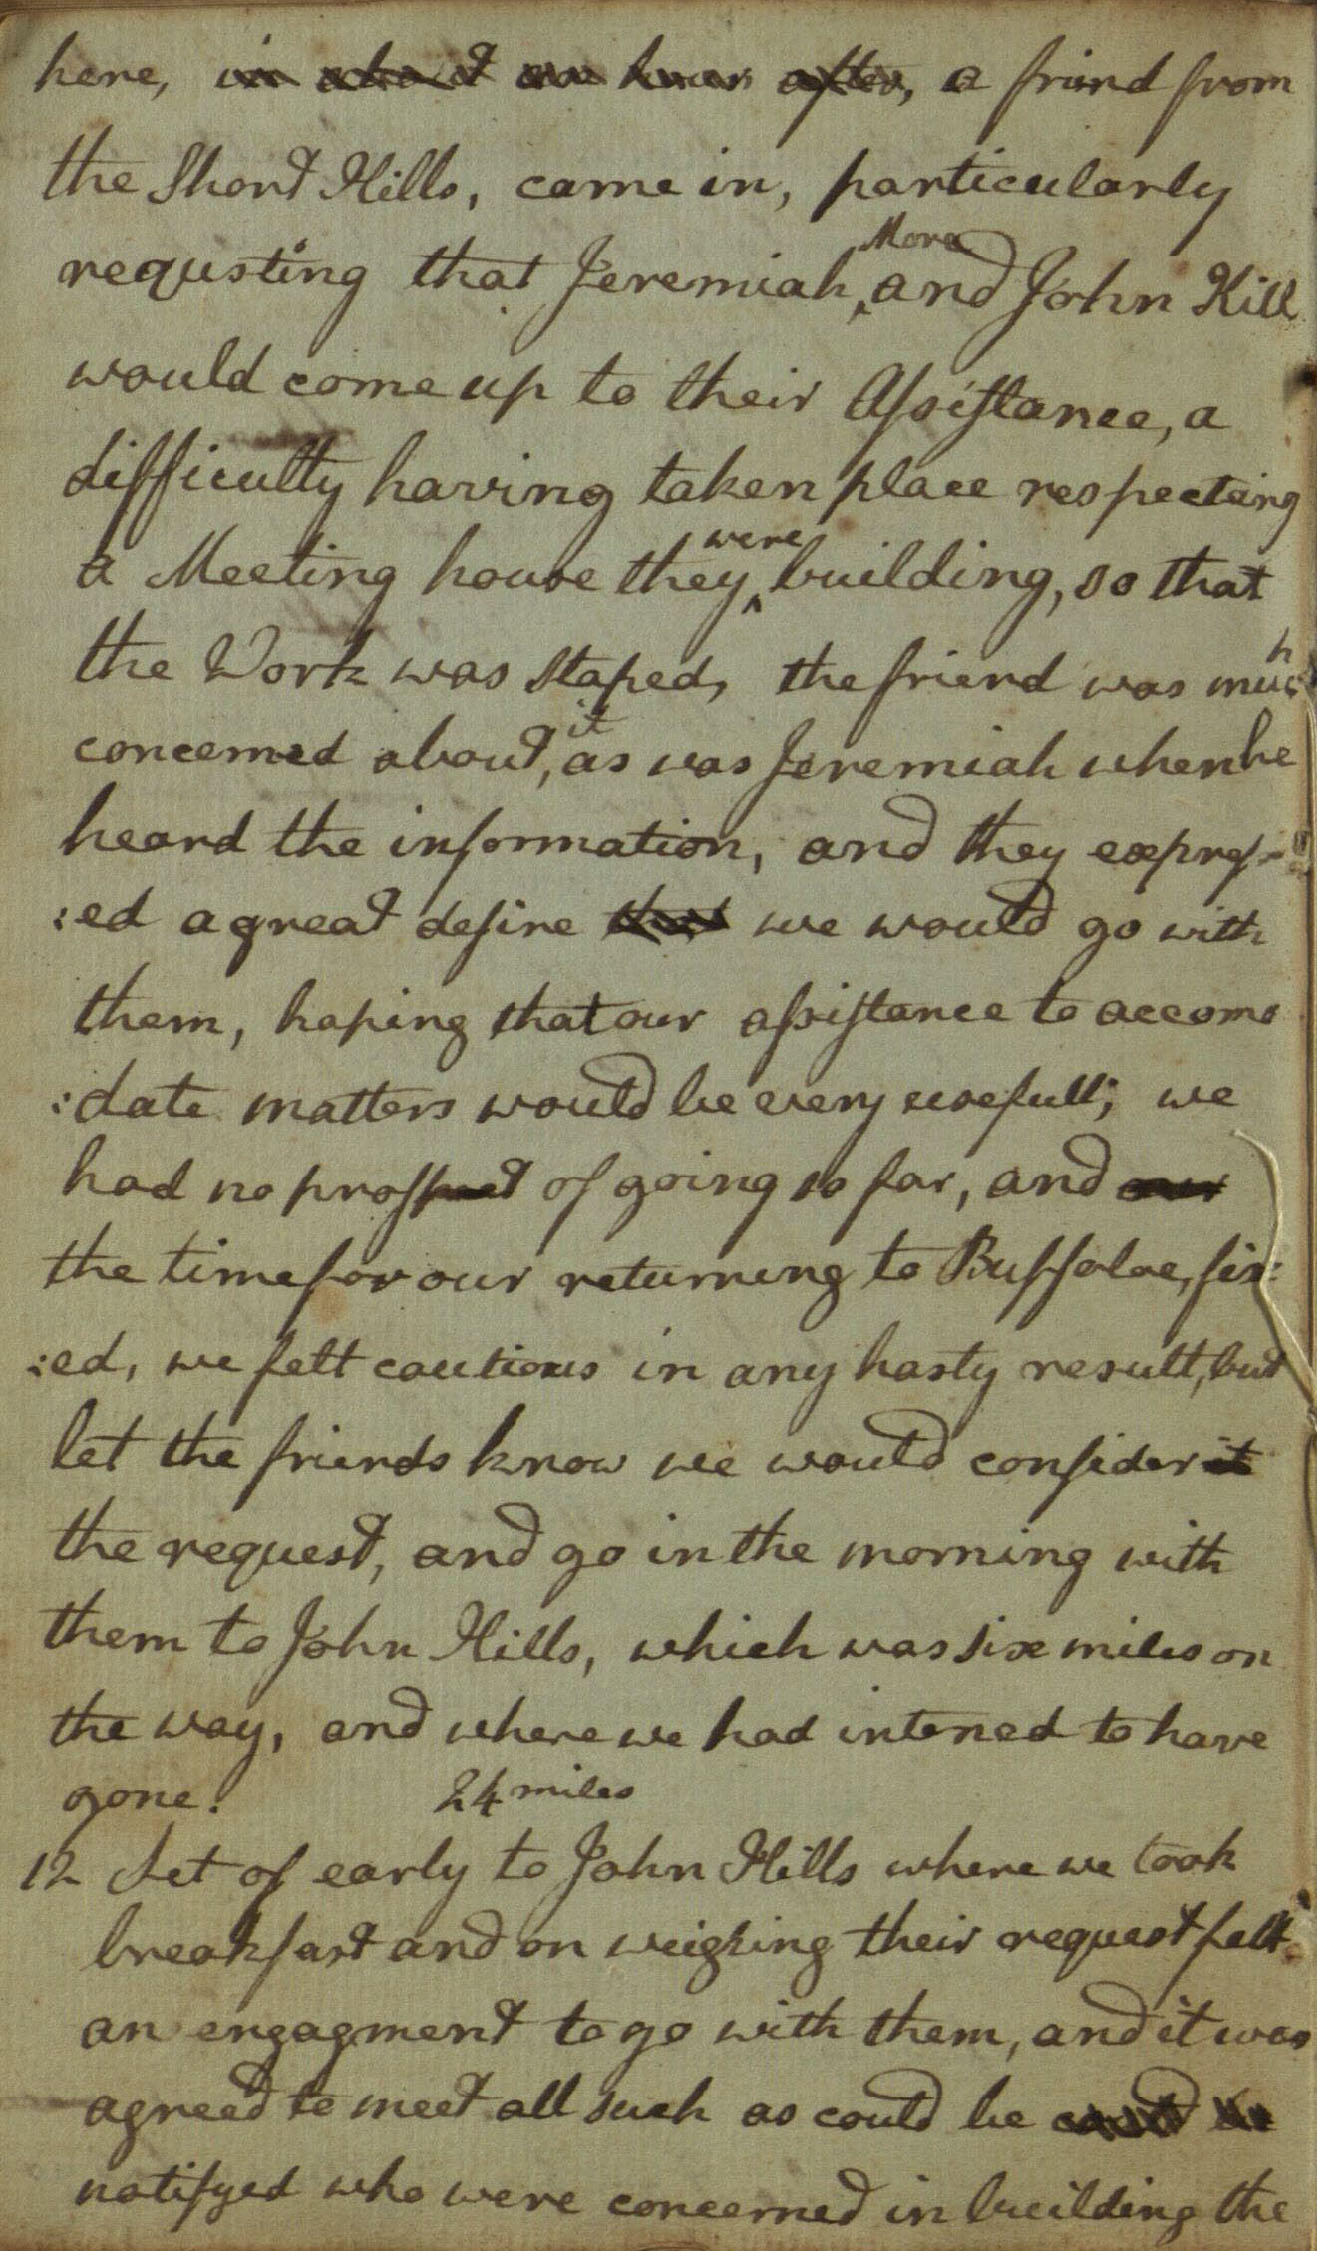 here, in about an hour after, a friend from
the Short Hills, came in, particularly
requsting that Jeremiah More and John Hill
would come up to their Assistance, a
difficulty having taken place respecting
a Meeting house they were building, so that
the Work was stoped, the friend was much
concerned about, it as was Jeremiah when he
heard the information, and they express
:ed a great desire that we would go with
them, hoping that our assistance to accomo
:date matters would be every usefull; we
had no prospect of going so far, and our
the time for our returning to Buffaloe, fix:
:ed, we felt cautious in any hasty result, but
let the friends know we would consider it
the request, and go in the morning with
them to John Hills, which was six miles on
the way, and where we had intened to have
gone. 24 miles
12 Set of early to John Hills where we took
breakfast and on weighing their request felt
an engagment to go with them, and it was
agreed to meet all such as could be could be
notifyed who were concerned in building the